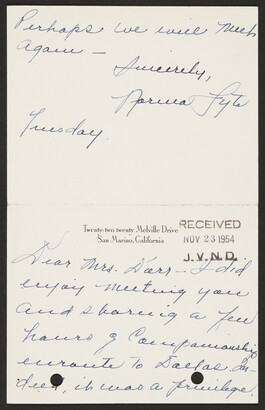 Perhaps we will meet
again —
Sincerely,
Norma Fyte
Tuesday.
Twenty-two twenty Melville Drive
San Marino, California
RECEIVED
NOV 23 1954
J.V.N.D.
Dear Mrs. Dors — I did
enjoy meeting you
and sharing a few
hours of Companionship
enroute to Dallas. In-
deed, it was a privilege.